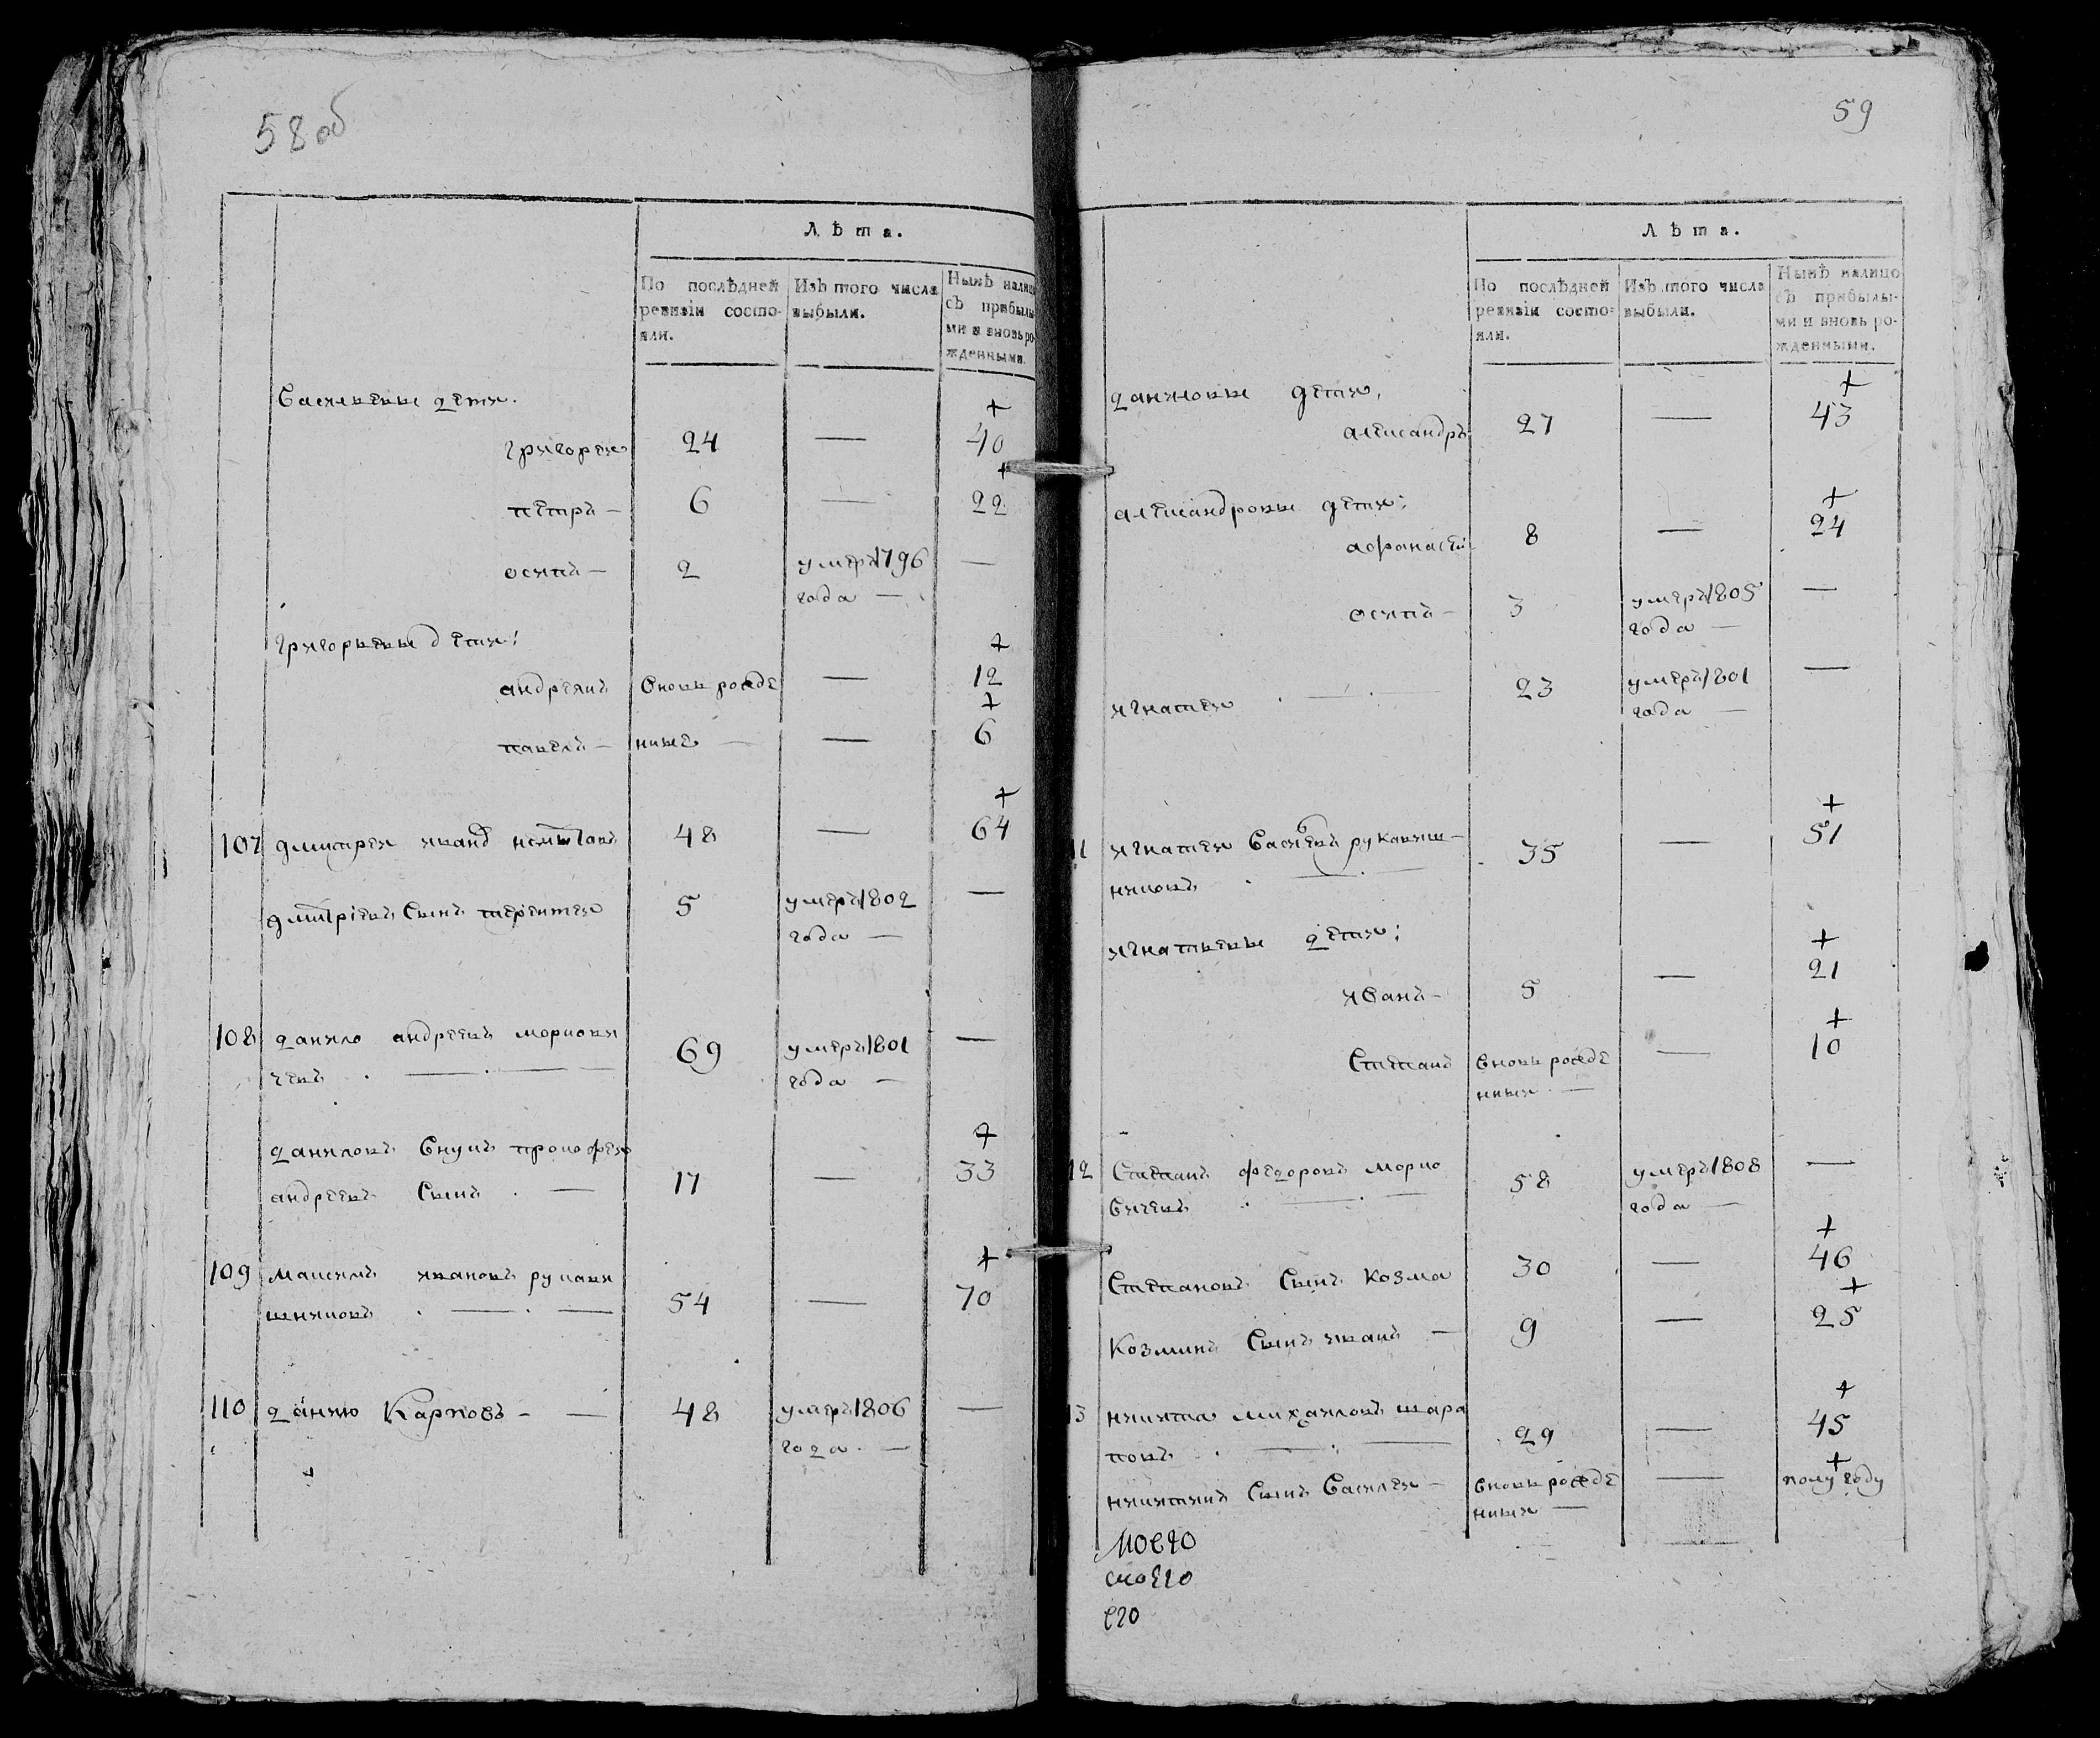 58 об
Лѣта.
По послѣдней ревизіи состояли.
Изъ того числа выбыли.
Нынѣ налицо съ прибылыми и вновь рожденными.
Васильевы дети.
григореи 24 — + 40
петръ — 6 — + 22
осипъ — 2 умеръ 1796 —
года —
григорьевы дети:
андреянъ вновь рожде — + 12
павелъ — нные — — + 6
107 дмитреи иванов 48 — + 64
дмитріевъ сынъ терентеи 5 умеръ 1802 —
года —
108 данило андреевъ моркови 69 умеръ 1801 —
чевъ года —
даниловъ внукъ прокофеи
андреевъ сынъ — 17 — + 33
109 максимъ ивановъ рукави
шниковъ 54 — + 70
110 данило Карповъ — — 48 умеръ 1806 —
года —
59
Лѣта.
По послѣдней ревизіи состояли.
Изъ того числа выбыли.
Нынѣ налицо съ прибылыми и вновь рожденными.
даниловы дети,
александръ 27 — + 43
александровы дети:
афонасеи 8 — + 24
осипъ — 3 умеръ 1805 —
года —
игнатеи 23 умеръ 1801 —
года —
11 игнатеи Васиевъ рукавиш— 35 — + 51
никовъ
игнатьевы дети:
иванъ — 5 — + 21
степанъ вновь рожде — + 10
нныи —
12 Степанъ федоровъ морко 58 умеръ 1808 —
вичевъ года —
степановъ сынъ козма 30 — + 46
козминъ сынъ иванъ — 9 — + 25
13 никита михаиловъ шара 29 — + 45
повъ
никитинъ сынъ Василеи — вновь рожде — + полугоду
нныи —
моего
скоего
его